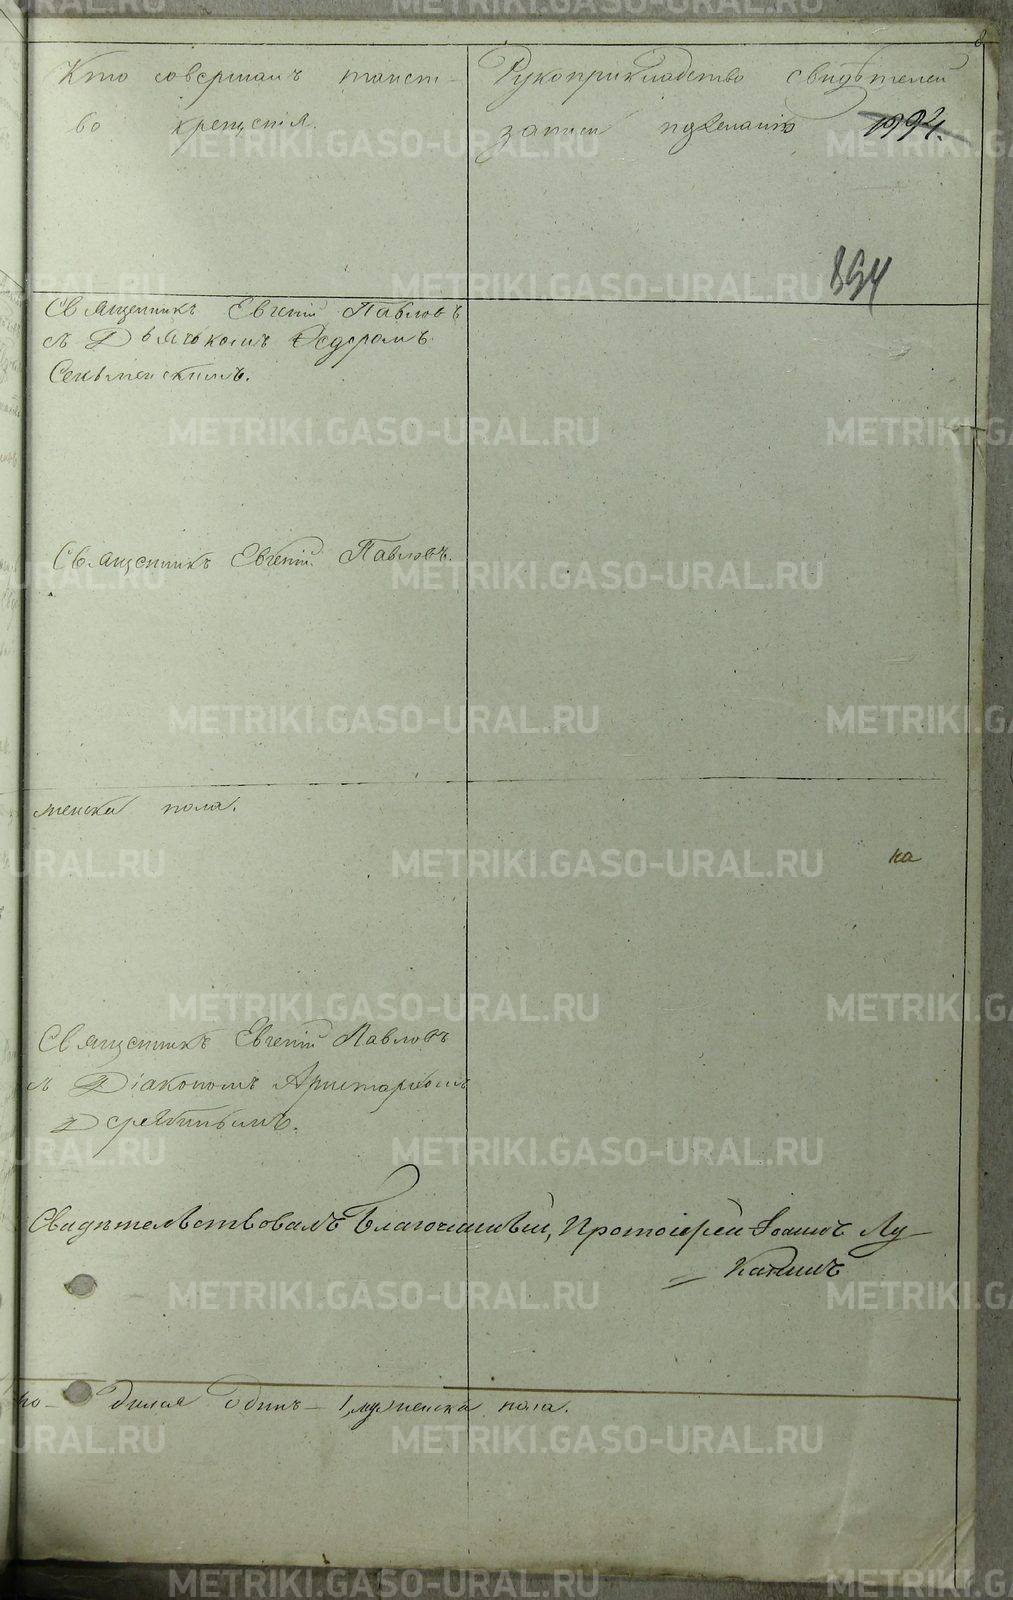 Кто совершалъ таинст- Рукоприкладство свидѣтелей
во крещенія. записи по желанію 1994.
894
Священникъ Евгеній Павловъ
съ Дьячкомъ Ѳедоромъ
Священникъ Евгеній Павловъ.
женска пола.
ка
Священникъ Евгеній Павловъ
съ Діакономъ Аристархомъ
Дерябинымъ.
Свидѣтельствовалъ Благочинный, Протоіерей Іоаннъ Лу-
канинъ
одинъ – 1, мужеска пола.
METRIKI.GASO-URAL.RU